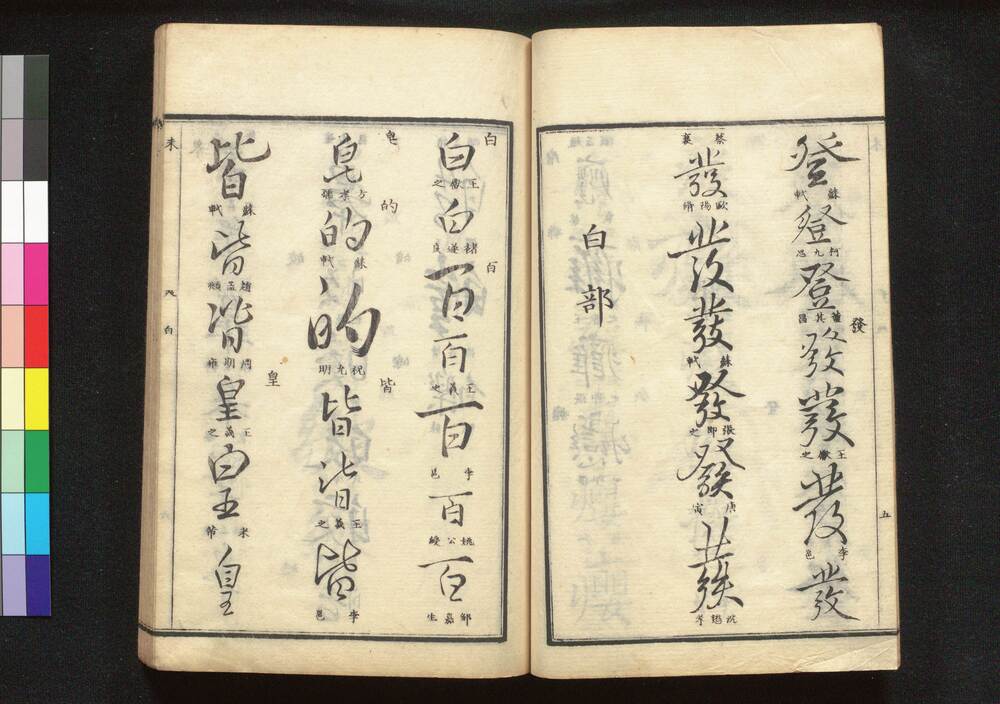 登 蘇軾 登 柯九思 登 董其昌
發
發 發 王獻之 發 李邕 發
蔡襄 發 歐陽脩 發 發 蘇軾 發 張即之 發 唐寅 發
白部
五
白
白 王獻之 白 褚遂良
百
百 百 王羲之 百 李邕 百 姚公綬 百 鄒嘉生
皂
皂 方孝孺
的
的 蘇軾 的 祝允明
皆
皆 皆 王羲之 皆 李邕
皆 蘇軾 皆 趙孟頫 皆 周期雍
皇
皇 王羲之 皇 米芾 皇
未
白